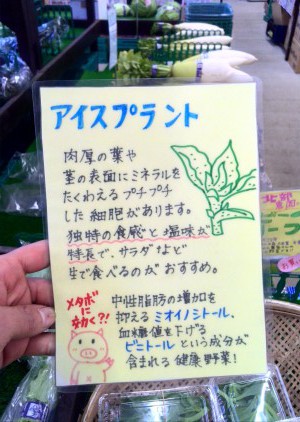 アイスプラント
肉厚の葉や
茎の表面にミネラルを
たくわえるプチプチ
した細胞があります。
独特の食感と塩味が
特長で、サラダなど
生で食べるのがおすすめ。
メタボに
効く?!
中性脂肪の増加を
抑えるミオイノシトール、
血糖値を下げる
ピニトールという成分が
含まれる健康野菜!
北部